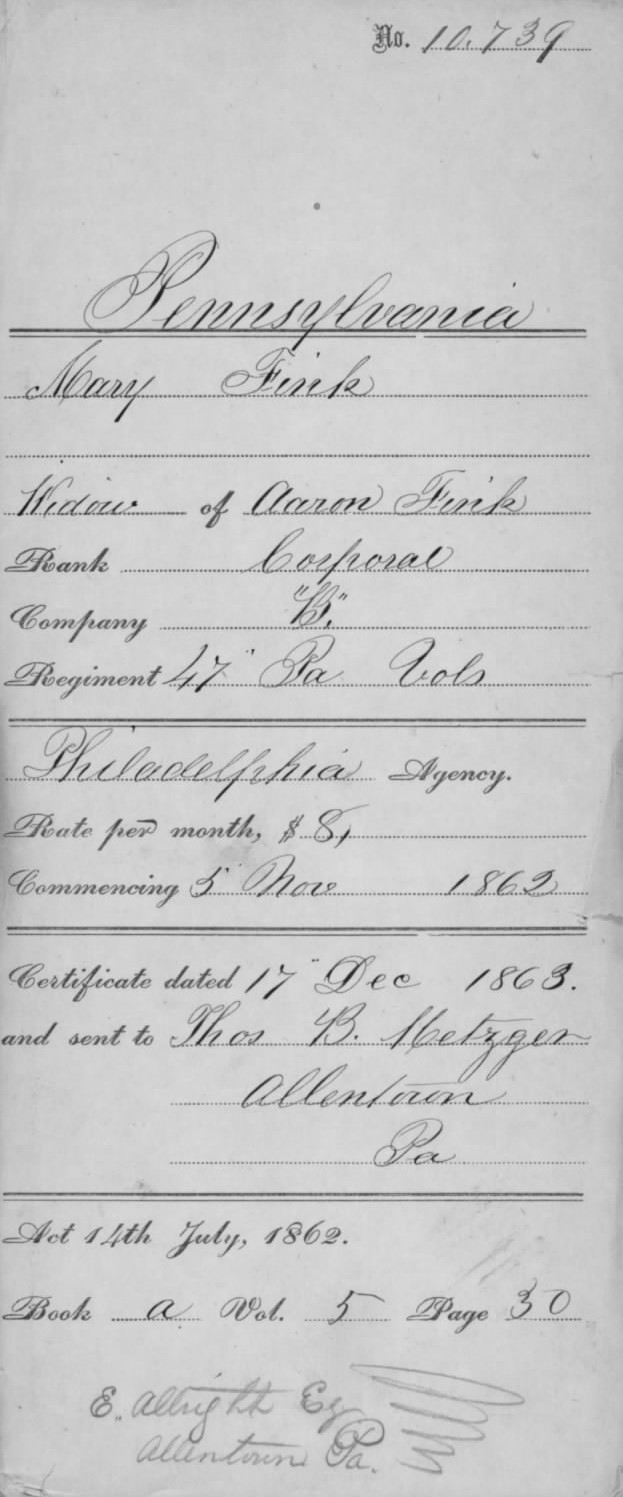 No. 10,739
Pennsylvania
Mary Fink
Widow of Aaron Fink
Rank Corporal
Company "B."
Regiment 47" Pa Vols
Philadelphia Agency.
Rate per month, $ 8,
Commencing 5" Nov 1862
Certificate dated 17" Dec 1863.
and sent to Thos B. Metzger
Allentown
Pa
Act 14th July, 1862.
Book a Vol. 5 Page 30
E. Albright Esq
Allentown Pa.